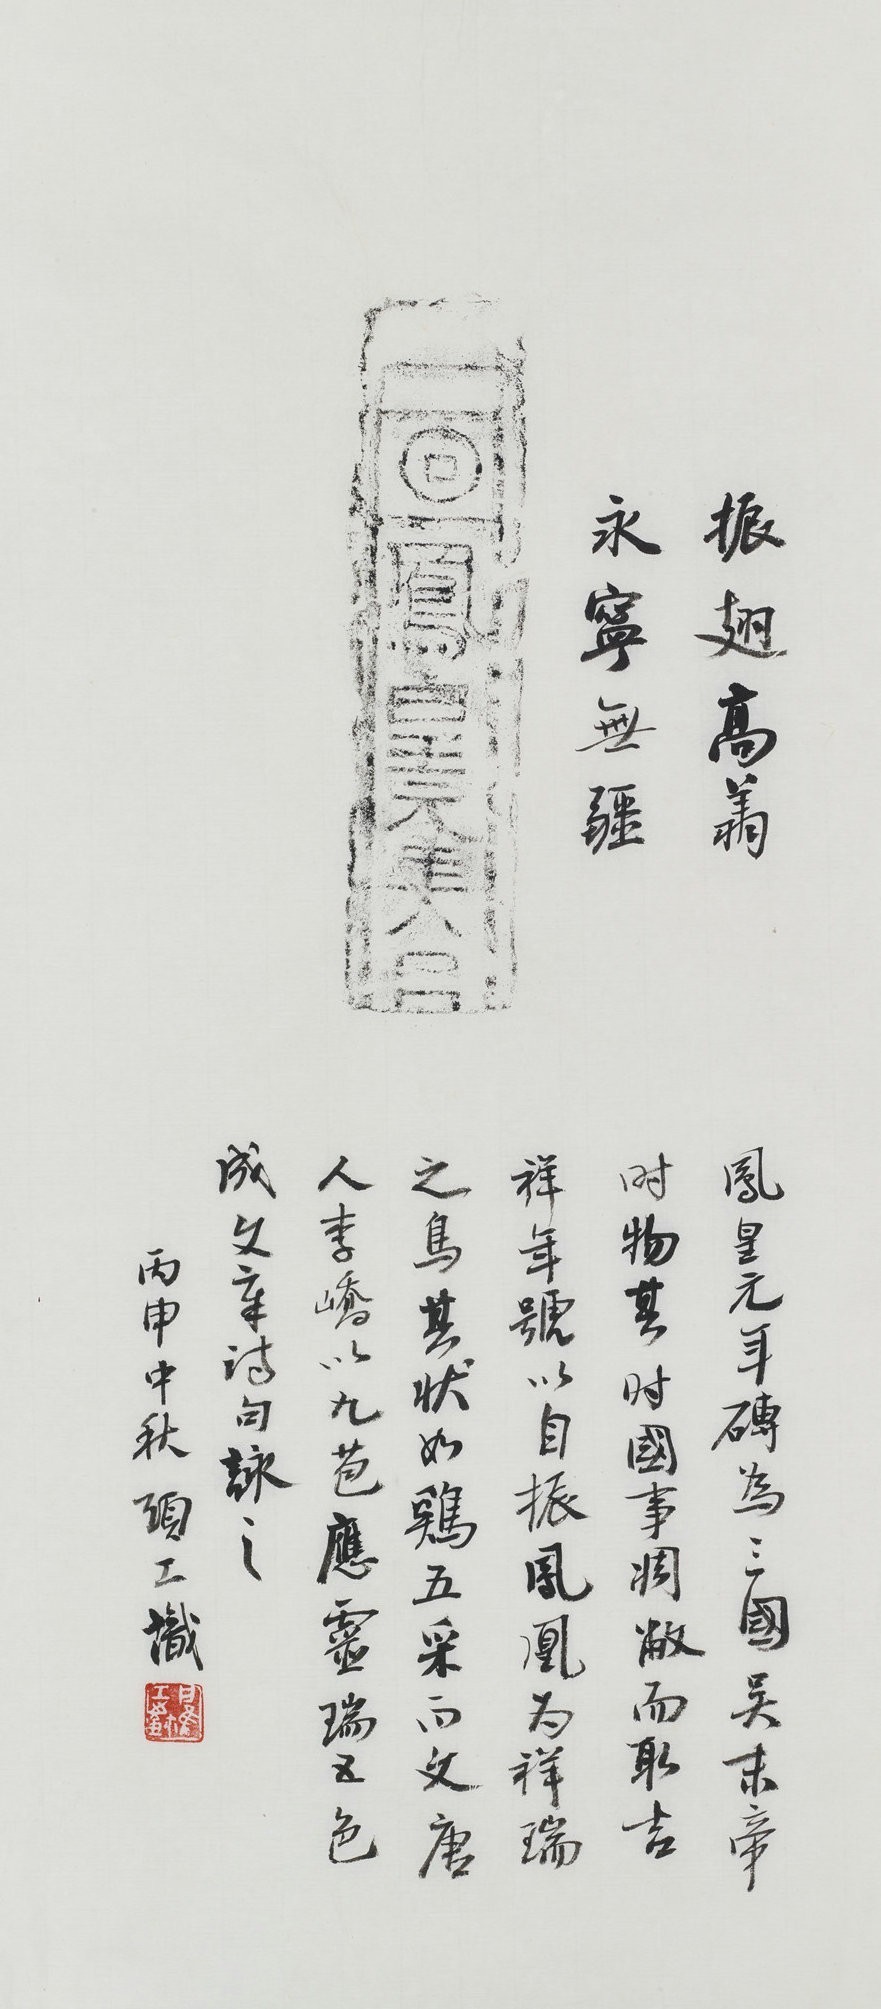 振翅高翥
永寧無疆
鳳皇元年磚為三國吴末帝
时物其时國事凋敝而取吉
祥年號以自振鳳凰为祥瑞
之鳥其状如鷄五采而文唐
人李嶠以九苞應靈瑞五色
成文章诗句詠之
丙申中秋 工識